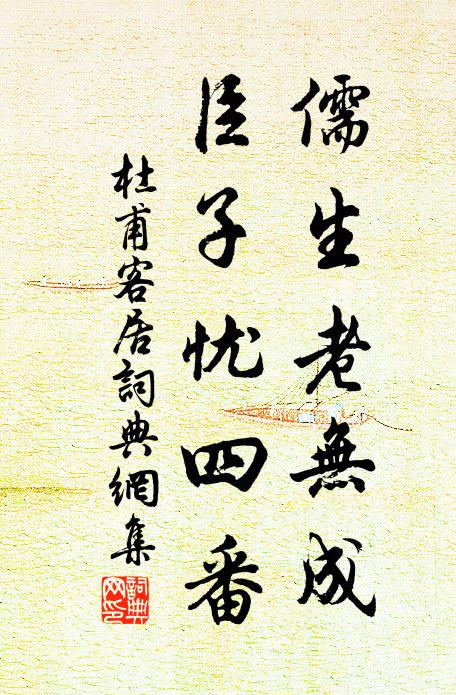 儒生老無成
臣子忧四番
杜甫客居詞典網集
詞典网印